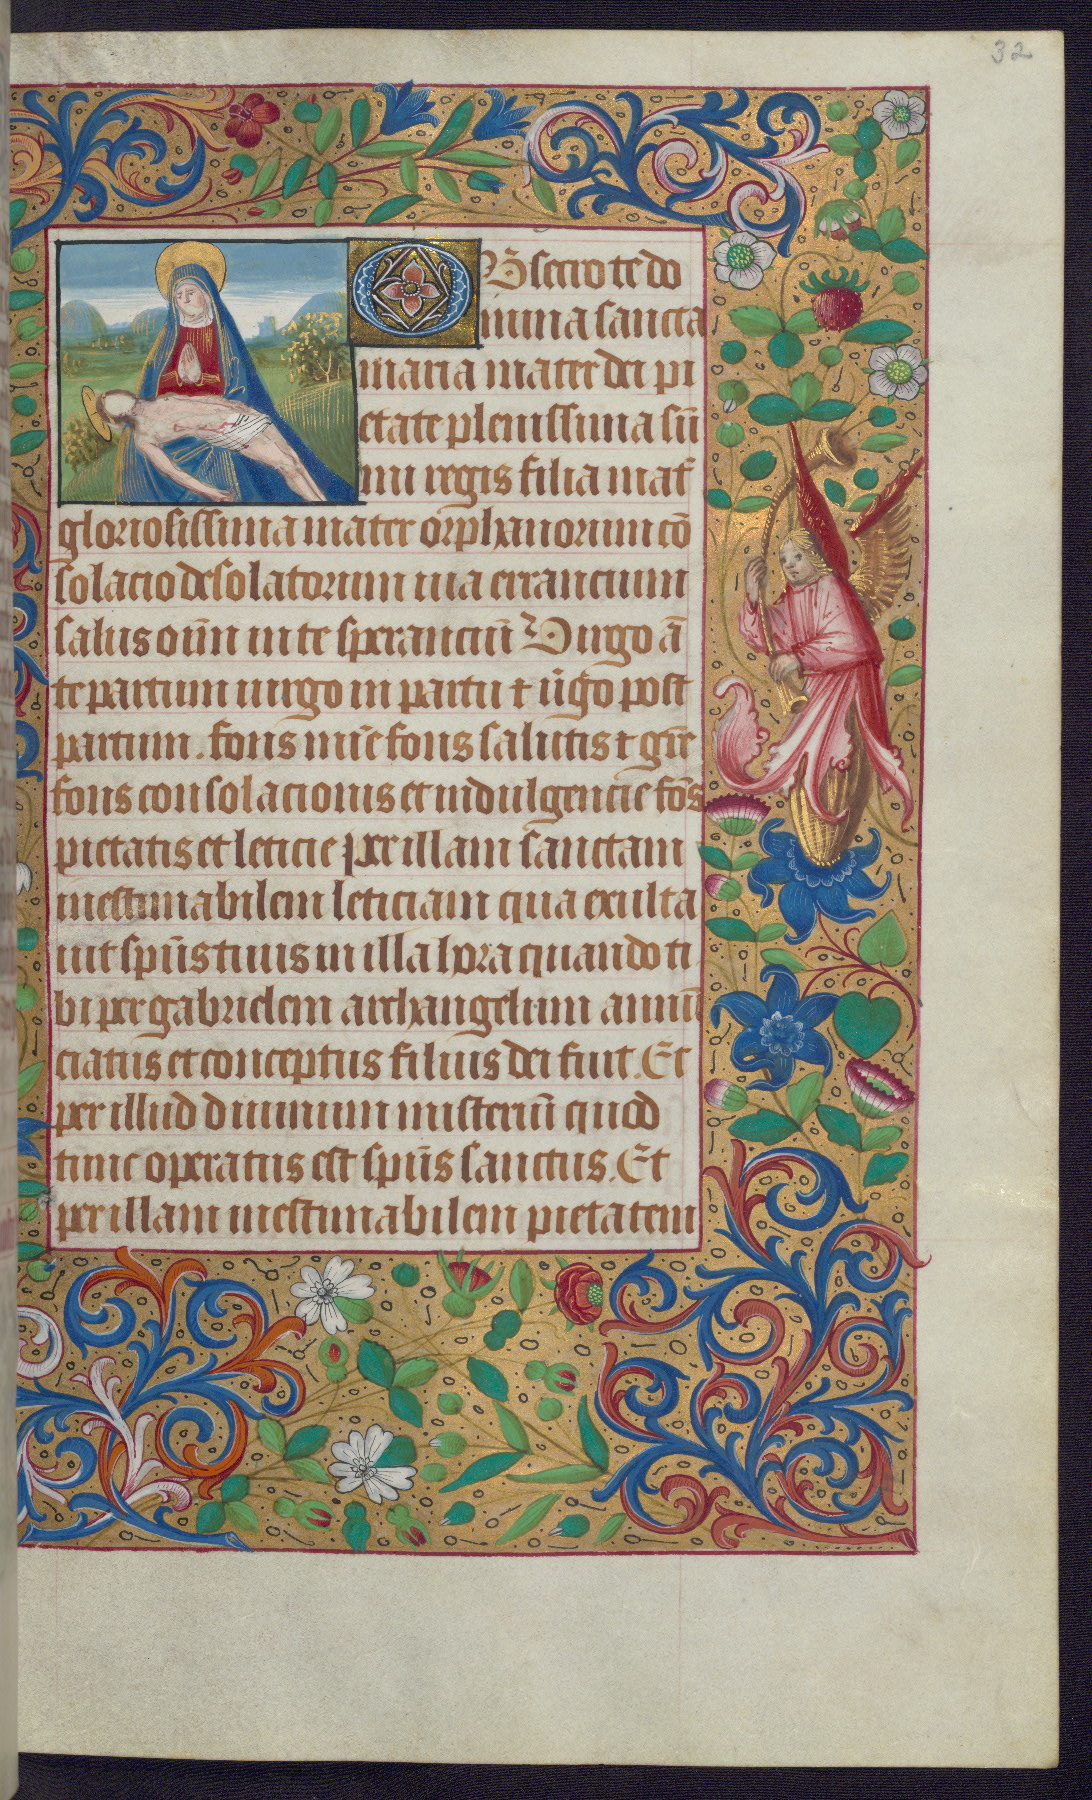 32
OB̄secro te do
mina sancta
maria mater dei pi
etate plenissima sū
mi regis filia mat̄
gloriosissima mater orphanorum cō
solacio desolatorum uia errancium
salus oīm in te speranciū Uirgo ā
te partum uirgo in partu ⁊ uīgo post
partum. fons mīe fons salutis ⁊ grē
fons consolacionis et indulgencie fōs
pietatis et leticie Per illam sanctam
inestimabilem leticiam qua exulta
uit spūs tuus in illa hora quando ti
bi per gabrielem archangelum annū
ciatus et conceptus filius dei fuit. Et
per illud diuinum misteriū quod
tunc operatus est spūs sanctus. Et
per illam inestimabilem pietatem